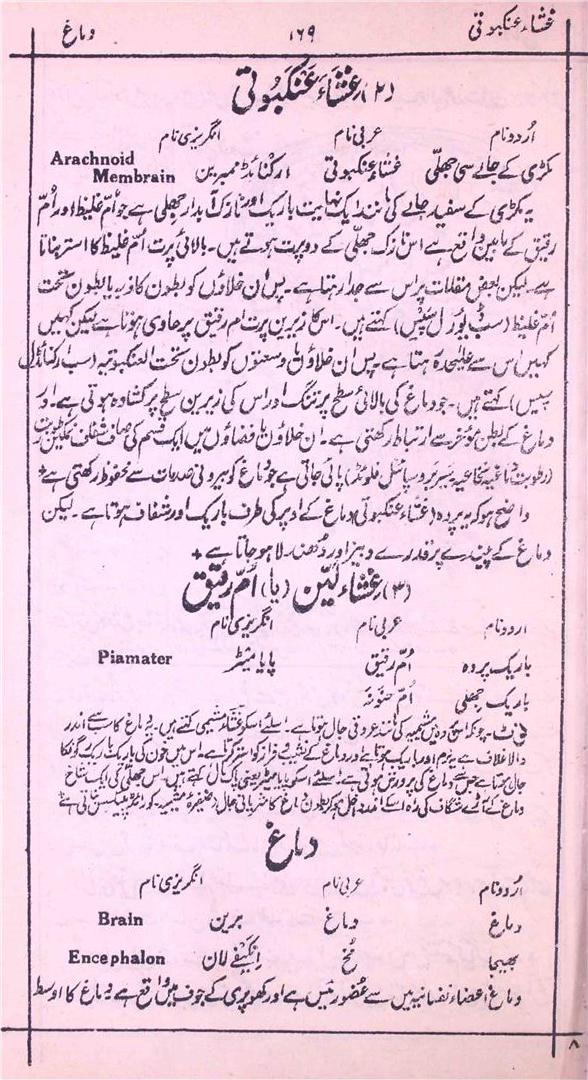 غشاء عنکبوتی ۱۶۹ دماغ
(۲) غشاءَ عَنکَبُوتی
اُردو نام عربی نام انگریزی نام
مکڑی کے جالے سی جھلّی غشاءِ عنکبوتی ارکنائڈ ممبرین Arachnoid Membrain
یہ مکڑی کے سفید جالے کی مانند ایک نہایت باریک اور نازک آبدار جھلی ہے جو اُمّ غلیظ اور اُمّ
رقیق کے مابین واقع ہے اس نازک جھلّی کے دو پرت ہوتے ہیں۔ بالائی پرت اُمّ غلیظ کا استر بناتا
ہے۔ لیکن بعض مقامات پر اس سے جدا رہتا ہے۔ پس ان خلاؤں کو بطون کاذبہ یا بطون تحت
اُمّ غلیظ (سب ڈیورل سپیس) کہتے ہیں۔ اس کا زیرین پرت ام رقیق پر حاوی ہوتا ہے لیکن کہیں
کہیں اس سے علیحدہ رہتا ہے۔ پس ان خلاؤں یا وسعتوں کو بطون تحت العنکبوتیہ (سب ارکنائڈل
سپیس) کہتے ہیں۔ جو دماغ کی بالائی سطح پر تنگ اور اس کی زیرین سطح پر کشادہ ہوتی ہے۔ اور
دماغ کے بطن مؤخر سے ارتباط رکھتی ہے۔ ان خلاؤں یا فضاؤں میں ایک قسم کی صاف شفاف نمکین رطوبت
(رطوبت دماغیہ نخاعیہ سریبرو سپائنل فلوئڈ) پائی جاتی ہے جو دماغ کو بیرونی صدمات سے محفوظ رکھتی ہے +
واضح ہو کہ یہ پردہ (غشاء عنکبوتی) دماغ کے اوپر کی طرف باریک اور شفاف ہوتا ہے۔ لیکن
دماغ کے پیندے پر قدرے دبیز اور دھندلا ہو جاتا ہے +
(۳) غشاء لیّن (یا) اُمّ رقیق
اردو نام عربی نام انگریزی نام
باریک پردہ اُمّ رقیق پایا میٹر Piamater
باریک جھلی اُمّ حنونہ
نوٹ۔ چونکہ اس پردہ میں مشیمہ کی مانند عروقی جال ہوتا ہے۔ اسلئے اسکو غشاء مشیمی کہتے ہیں۔ یہ دماغ کا سب سے اندر
والا غلاف ہے یہ نرم اور باریک ہوتا ہے اور دماغ کے نشیب و فراز کو استر کرتا ہے۔ اس میں خون کی باریک باریک رگونکا
جال ہوتا ہے جس سے دماغ کی پرورش ہوتی ہے اسلئے اسکو پایا میٹر یعنی کہتے ہیں۔ اس جھلی کی ایک شاخ
دماغ کے شگاف کی راہ اسکے اندر داخل ہو کر بطون دماغ کا شریانی جال (ضفیرۂ مشیمیہ۔ کورائڈ پلیکسس) بنتی ہے
دماغ
اُردو نام عربی نام انگریزی نام
دماغ دماغ برین Brain
بھیجا مُخ اِنکیفے لان Encephalon
دماغ اعضاء نفسانیہ میں سے عُضو رئیس ہے اور کھوپری کے جوف میں واقع ہے یہ دماغ کا اوسط
۸